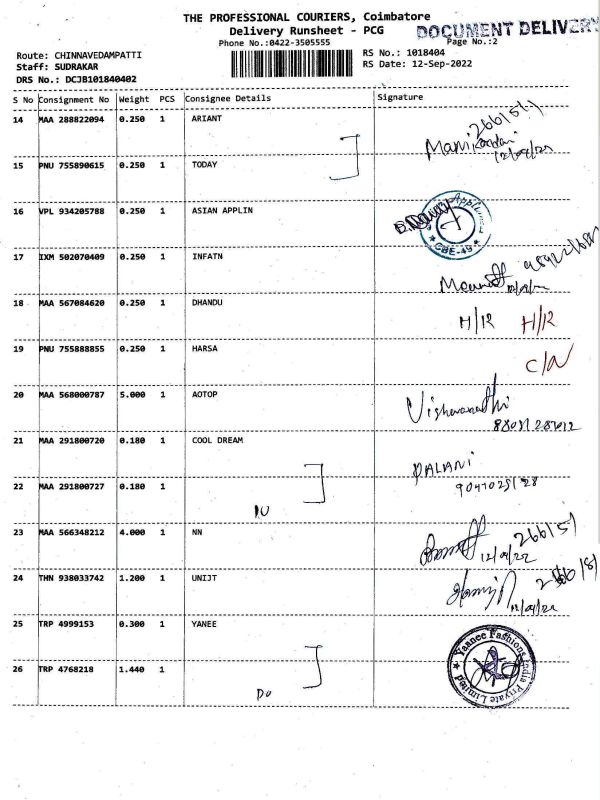 THE PROFESSIONAL COURIERS, Coimbatore
Delivery Runsheet - PCG
DOCUMENT DELIVERY
Phone No.:0422-3505555
Page No.:2
Route: CHINNAVEDAMPATTI
RS No.: 1018404
Staff: SUDRAKAR
RS Date: 12-Sep-2022
DRS No.: DCJB101840402
S No Consignment No Weight PCS Consignee Details Signature
14 MAA 288822094 0.250 1 ARIANT
15 PNU 755890615 0.250 1 TODAY
16 VPL 934205788 0.250 1 ASIAN APPLIN
CBE-49
17 IXM 502070409 0.250 1 INFATN
18 MAA 567084620 0.250 1 DHANDU H/R H/R
19 PNU 755888855 0.250 1 HARSA C/N
20 MAA 568000787 5.000 1 AOTOP
21 MAA 291800720 0.180 1 COOL DREAM PALANi
22 MAA 291800727 0.180 1
23 MAA 566348212 4.000 1 NN 266151
12/09/22
24 THN 938033742 1.200 1 UNIJT
25 TRP 4999153 0.300 1 YANEE
Yaanee Fashions India Private Limited
26 TRP 4768218 1.440 1
DO